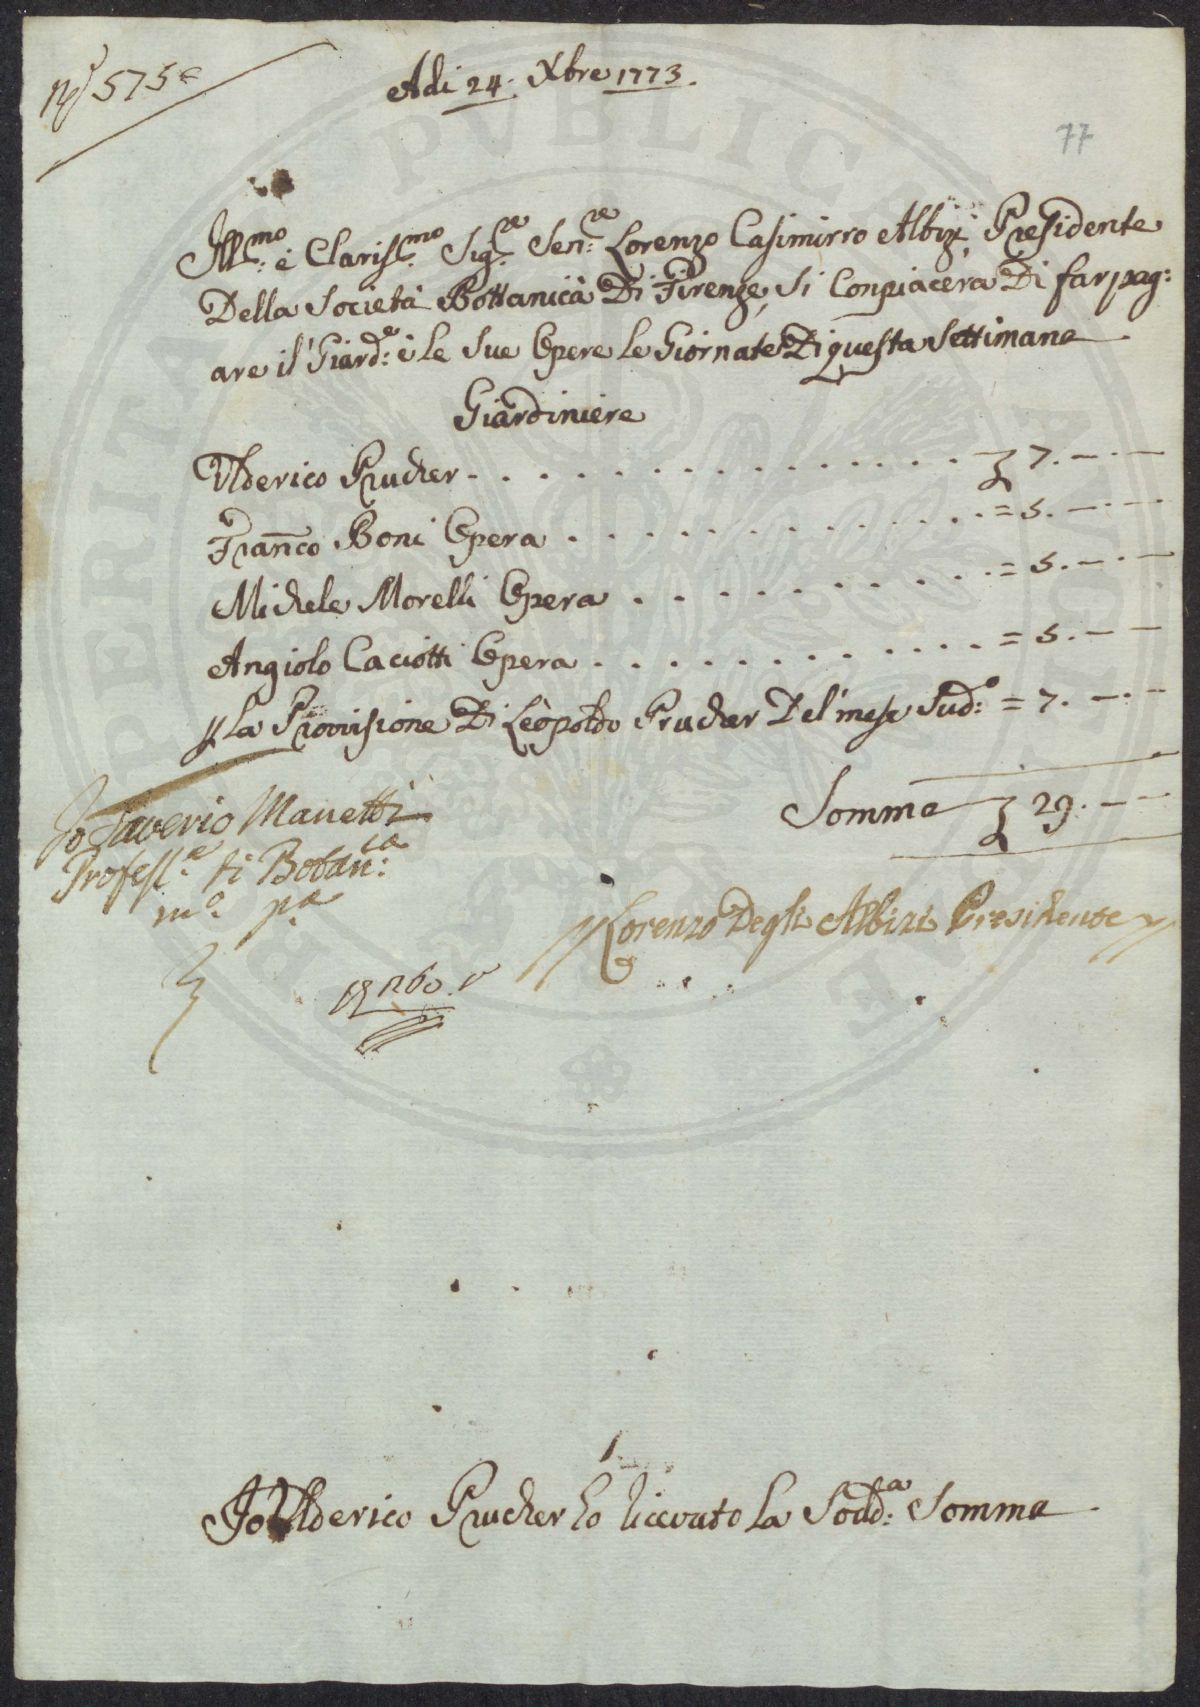 Nº 575
Adi 24. Xbre 1773.
77
Ill.mo e Clariss.mo Sig.re Sen.re Lorenzo Casimirro Albizi Presidente
Della Società Bottanica Di Firenze, si Conpiacera Di far pag:
are il Giard.e e le sue Opere le Giornate Di questa Settimana
Giardiniere
Ulderico Prucher - . . . . . . . . . . . . . . £ 7. — . —
Fran̄co Boni Opera . . . . . . . . . . . . = 5. — . —
Michele Morelli Opera . . . . . . . . . . = 5. — . —
Angiolo Caciotti Opera . . . . . . . . . . . = 5. — . —
La Provisione Di Leopoldo Prucher Del mese Sud.o = 7. — . —
Somma £ 29. — —
Io Saverio Manetti
Profess.e di Botan.ca
m.o p.a
Lorenzo Degli Albizi Presidente
Io Ulderico Prucher ho ricevuto La Sodd.a Somma
PERITAT PVBLICAE AVGMENTO